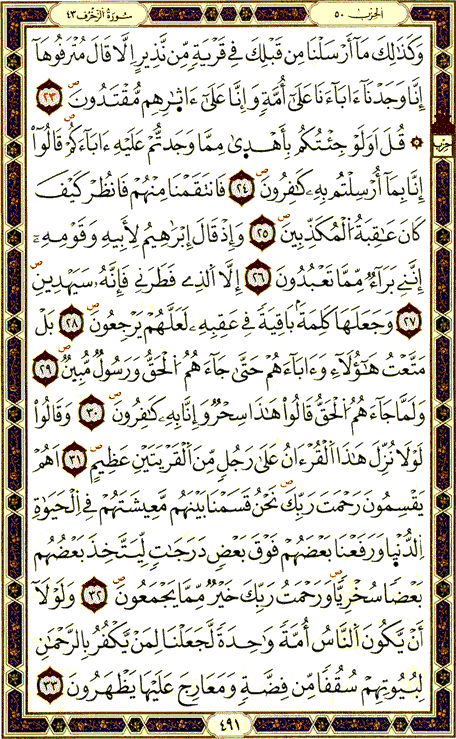 الحزب ٥٠
سُورَةُ الزُّخْرُفِ ٤٣
وَكَذَٰلِكَ مَآ أَرْسَلْنَا مِن قَبْلِكَ فِي قَرْيَةٍ مِّن نَّذِيرٍ اِلَّا قَالَ مُتْرَفُوهَآ
إِنَّا وَجَدْنَآ ءَابَآءَنَا عَلَىٰٓ أُمَّةٍ وَإِنَّا عَلَىٰٓ ءَاثٰ۪رِهِم مُّقْتَدُونَ ٢٣
۞ قُلَ اَوَلَوْ جِئْتُكُم بِأَهْد۪ىٰ مِمَّا وَجَدتُّمْ عَلَيْهِ ءَابَآءَكُمْ قَالُوٓاْ
إِنَّا بِمَآ أُرْسِلْتُم بِهِۦ كَٰفِرُونَ ٢٤ فَانتَقَمْنَا مِنْهُمْ فَانظُرْ كَيْفَ
كَانَ عَٰقِبَةُ الْمُكَذِّبِينَ ٢٥ وَإِذْ قَالَ إِبْرَٰهِيمُ لِأَبِيهِ وَقَوْمِهِۦٓ
إِنَّنِے بَرَآءٌ مِّمَّا تَعْبُدُونَ ٢٦ إِلَّا اَلذِے فَطَرَنِے فَإِنَّهُۥ سَيَهْدِينِ
٢٧ وَجَعَلَهَا كَلِمَةَۢ بَاقِيَةً فِي عَقِبِهِۦ لَعَلَّهُمْ يَرْجِعُونَ ٢٨ بَلْ
مَتَّعْتُ هَٰٓؤُلَآءِ وَءَابَآءَهُمْ حَتَّىٰ جَآءَهُمُ الْحَقُّ وَرَسُولٌ مُّبِينٌ ٢٩
وَلَمَّا جَآءَهُمُ الْحَقُّ قَالُواْ هَٰذَا سِحْرٌ وَإِنَّا بِهِۦ كَٰفِرُونَ ٣٠ وَقَالُواْ
لَوْلَا نُزِّلَ هَٰذَا اَلْقُرْءَانُ عَلَىٰ رَجُلٍ مِّنَ اَلْقَرْيَتَيْنِ عَظِيمٍ ٣١ اَهُمْ
يَقْسِمُونَ رَحْمَتَ رَبِّكَ نَحْنُ قَسَمْنَا بَيْنَهُم مَّعِيشَتَهُمْ فِي اِلْحَيَوٰةِ
اِلدُّنْي۪ا وَرَفَعْنَا بَعْضَهُمْ فَوْقَ بَعْضٍ دَرَجَٰتٍ لِّيَتَّخِذَ بَعْضُهُم
بَعْضًا سُخْرِيًّا وَرَحْمَتُ رَبِّكَ خَيْرٌ مِّمَّا يَجْمَعُونَ ٣٢ وَلَوْلَآ
أَنْ يَّكُونَ اَلنَّاسُ أُمَّةً وَٰحِدَةً لَّجَعَلْنَا لِمَنْ يَّكْفُرُ بِالرَّحْمَٰنِ
لِبُيُوتِهِمْ سُقُفًا مِّن فِضَّةٍ وَمَعَارِجَ عَلَيْهَا يَظْهَرُونَ ٣٣
٤٩١